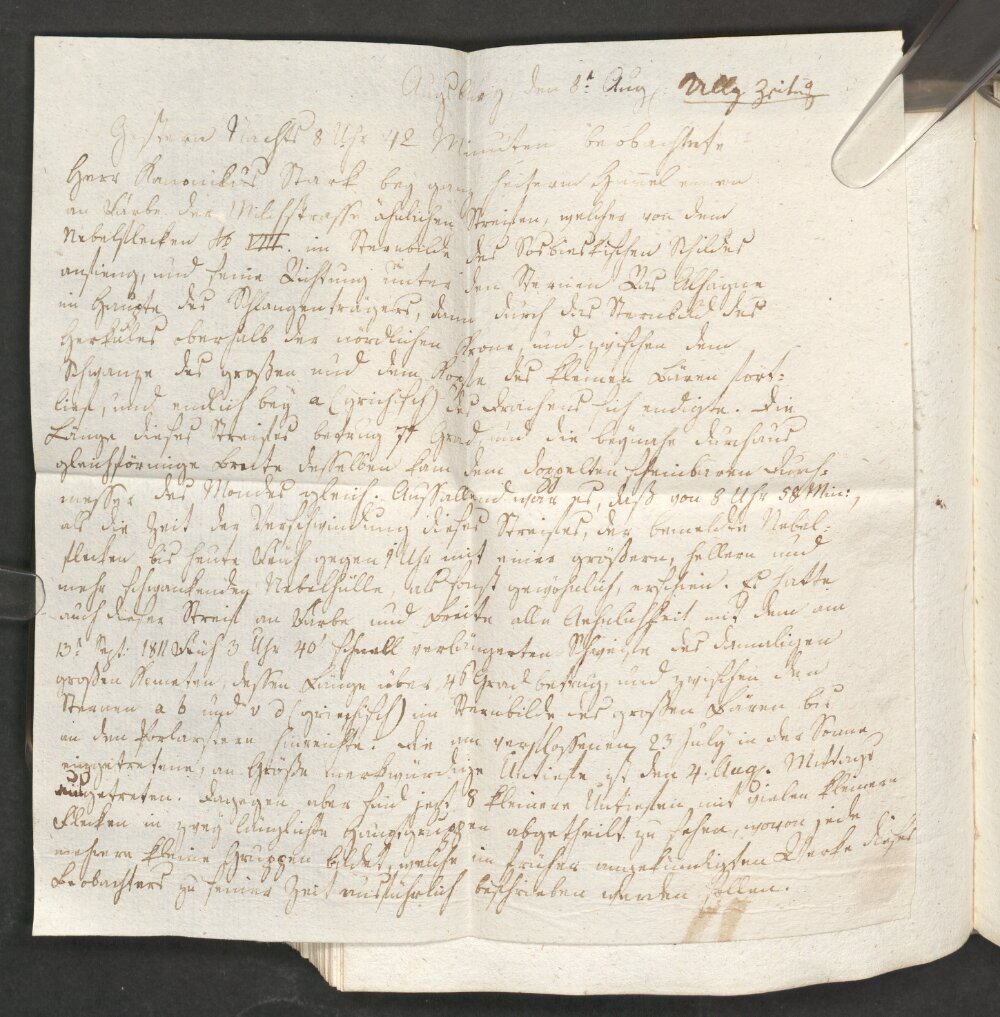 Augsburg, den 8t Aug. Allg Zeitug
Gestern Nachts 8 Uhr 42 Minuten beobachtete
Herr Kanonikus Stark bey ganz heiterm Himmel einen
an Farbe der Milchstrasse ähnlichen Streifen, welcher von dem
Nebelflecken № VIII. im Sternbilde des Sobieskischen Schildes
anfieng, und seine Richtung unter den Sternen Ras Alhague
im Haupte des Schlangenträgers, dann durch das Sternbild des
Herkules oberhalb der nördlichen Krone, und zwischen dem
Schwanze des großen und dem Kopfe des kleinen Bären fort-
lief, und endlich bey a (grichisch) des Drachens sich endigte. Die
Länge dieses Streifes betrug 77 Grad, und die beynahe durchaus
gleichförmige Breite desselben kam dem doppelten scheinbaren Durch-
messer des Mondes gleich. Auffallend war es, daß von 8 Uhr 58 Min:,
als die Zeit der Verschwindung dieses Streifes, der bemeldte Nebel-
flecken bis heute Früh gegen 1 Uhr mit einer größern, hellern und
mehr schwankenden Nebelhülle, als sonst gewöhnlich, erschien. Es hatte
auch dieser Streif an Farbe und Breite alle Aehnlichkeit mit dem am
13t Sept: 1811 Früh 3 Uhr 40' schnell verlängerten Schweife des damaligen
großen Kometen, dessen Länge über 46 Grad betrug, und zwischen den
Sternen a b und v d (griechisch) im Sternbilde des großen Bären bis
an den Porlarstern hinreichte. Die am verflossenen 23 July in der Sonne
eingetretene, an Größe merkwürdige Untiefe ist den 4. Aug. Mittags
ausgetreten. Dagegen aber sind jetzt 8 kleinere Untiefen mit vielen kleinern
Flecken in zwey länglichte Hauptgruppen abgetheilt zu sehen, wovon jede
mehrere kleine Gruppen bildet, welche im früher angekündigten Werke dieses
Beobachters zu seiner Zeit ausführlich beschrieben werden sollen.